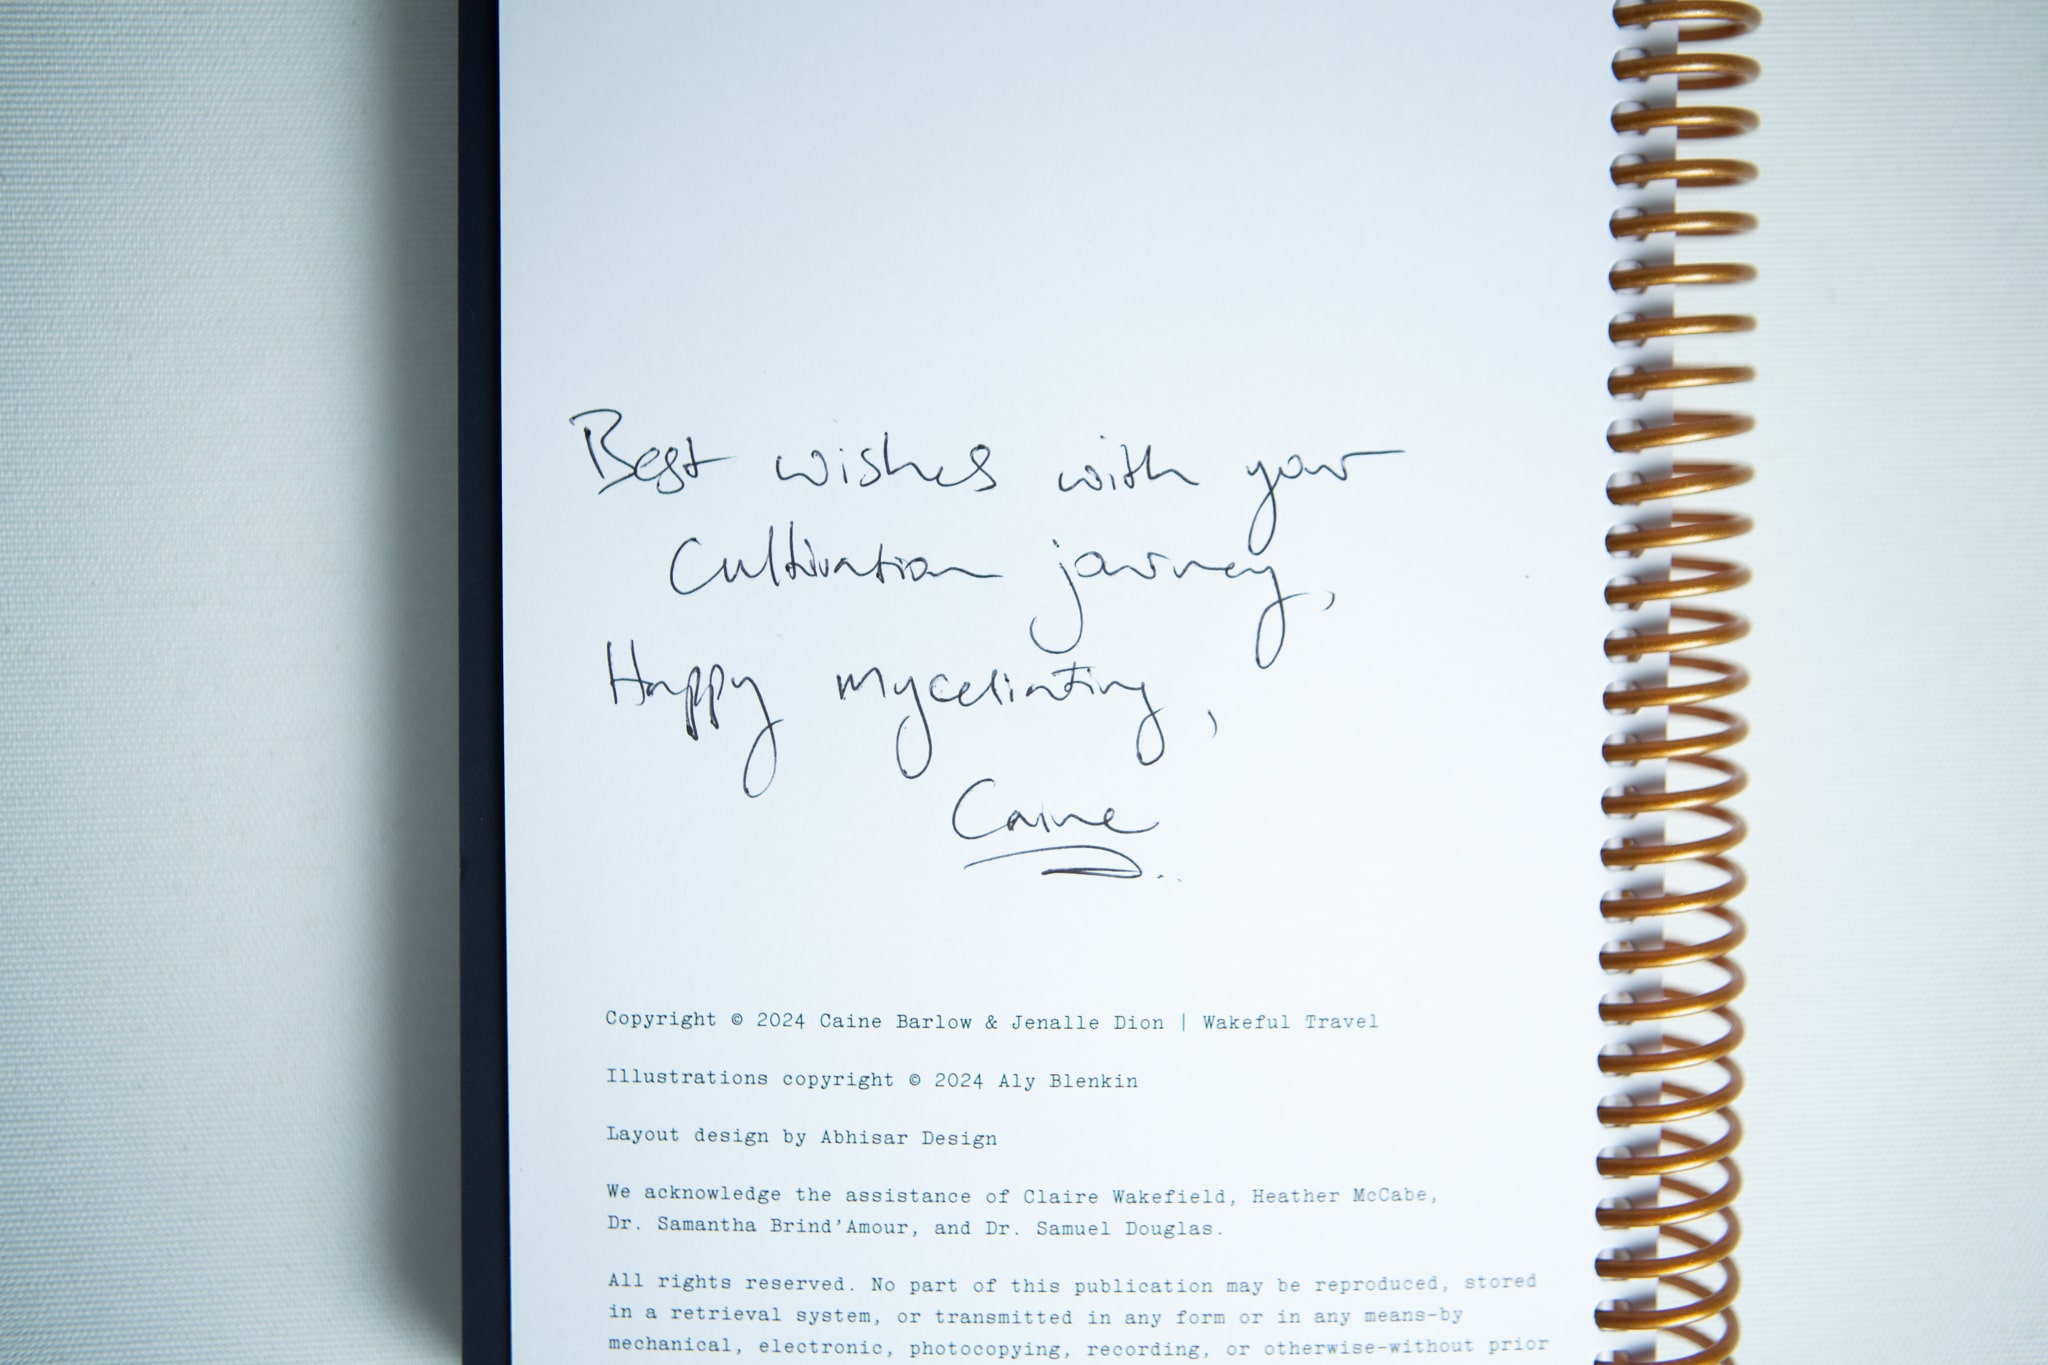 Best wishes with your
Cultivation journey,
Happy myceliating,
Caine
Copyright © 2024 Caine Barlow & Jenalle Dion | Wakeful Travel
Illustrations copyright © 2024 Aly Blenkin
Layout design by Abhisar Design
We acknowledge the assistance of Claire Wakefield, Heather McCabe,
Dr. Samantha Brind'Amour, and Dr. Samuel Douglas.
All rights reserved. No part of this publication may be reproduced, stored
in a retrieval system, or transmitted in any form or in any means-by
mechanical, electronic, photocopying, recording, or otherwise-without prior